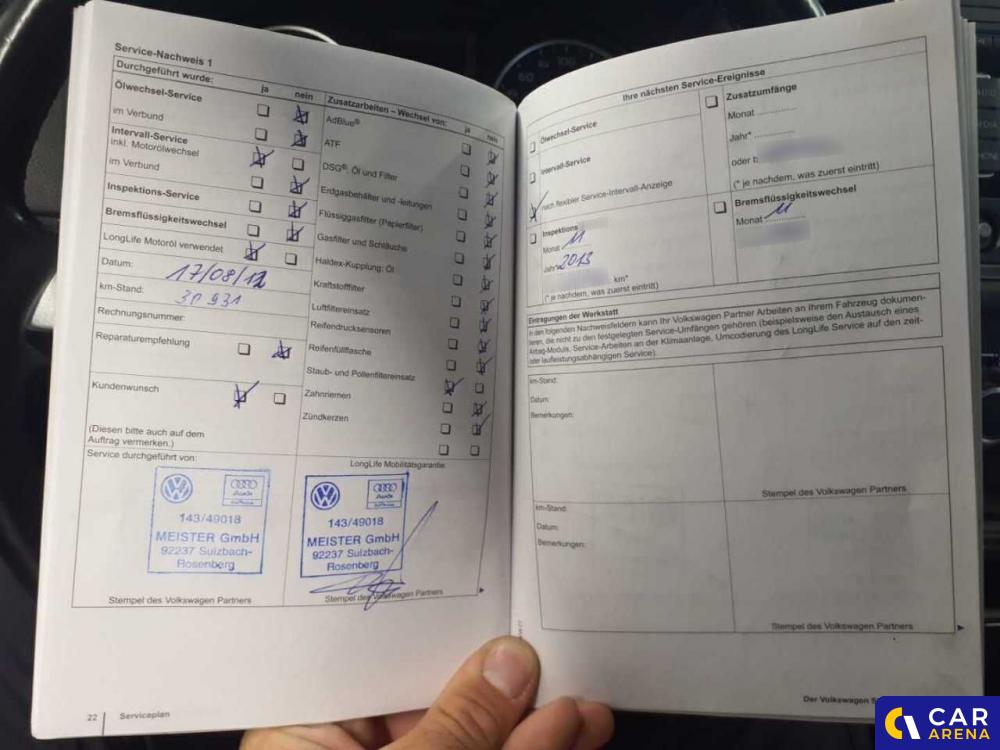 Service-Nachweis 1
Durchgeführt wurde:
ja nein
Ölwechsel-Service
im Verbund
Intervall-Service
inkl. Motorölwechsel
im Verbund
Inspektions-Service
Bremsflüssigkeitswechsel
LongLife Motoröl verwendet
Datum: 17/08/12
km-Stand: 30 931
Rechnungsnummer:
Reparaturempfehlung
Kundenwunsch
(Diesen bitte auch auf dem
Auftrag vermerken.)
Zusatzarbeiten – Wechsel von: ja nein
AdBlue®
ATF
DSG®: Öl und Filter
Erdgasbehälter und -leitungen
Flüssiggasfilter (Papierfilter)
Gasfilter und Schläuche
Haldex-Kupplung: Öl
Kraftstofffilter
Luftfiltereinsatz
Reifendrucksensoren
Reifenfüllflasche
Staub- und Pollenfiltereinsatz
Zahnriemen
Zündkerzen
Service durchgeführt von:
143/49018
MEISTER GmbH
92237 Sulzbach-
Rosenberg
Stempel des Volkswagen Partners
LongLife Mobilitätsgarantie:
Audi
143/49018
MEISTER GmbH
92237 Sulzbach-
Rosenberg
Stempel des Volkswagen Partners
22 Serviceplan
Ihre nächsten Service-Ereignisse
Ölwechsel-Service
Intervall-Service
nach flexibler Service-Intervall-Anzeige
Inspektions
Monat 11
Jahr* 2013
km*
(* je nachdem, was zuerst eintritt)
Zusatzumfänge
Monat
Jahr*
oder b
(* je nachdem, was zuerst eintritt)
Bremsflüssigkeitswechsel
Monat 11
Eintragungen der Werkstatt
In den folgenden Nachweisfeldern kann Ihr Volkswagen Partner Arbeiten an Ihrem Fahrzeug dokumen-
tieren, die nicht zu den festgelegten Service-Umfängen gehören (beispielsweise den Austausch eines
Airbag-Moduls, Service-Arbeiten an der Klimaanlage, Umcodierung des LongLife Service auf den zeit-
oder laufleistungsabhängigen Service).
km-Stand:
Datum:
Bemerkungen:
Stempel des Volkswagen Partners
km-Stand:
Datum:
Bemerkungen:
Stempel des Volkswagen Partners
Der Volkswagen S
CAR
ARENA